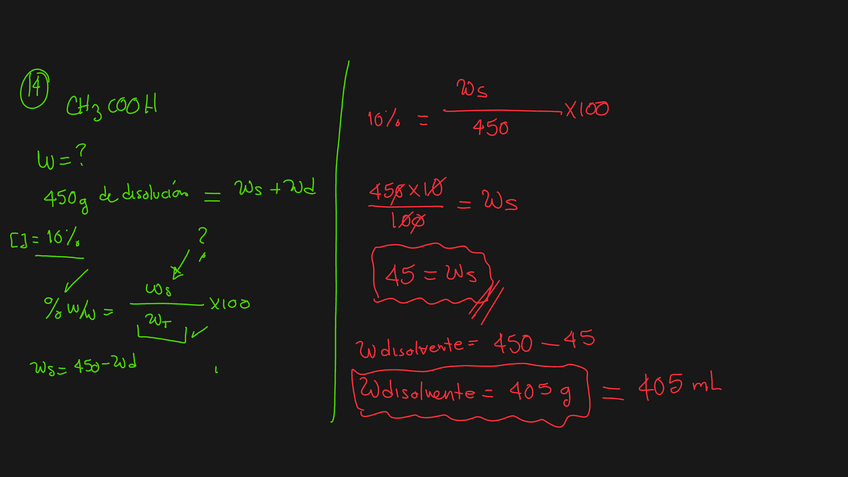 14
CH3COOH
W = ?
450g de disolución = Ws + Wd
[] = 10%
?
% W/W = Ws / WT x100
Ws = 450 - Wd
10% = Ws / 450 x100
450 x 10 / 100 = Ws
45 = Ws
Wdisolvente = 450 - 45
Wdisolvente = 405 g = 405 mL